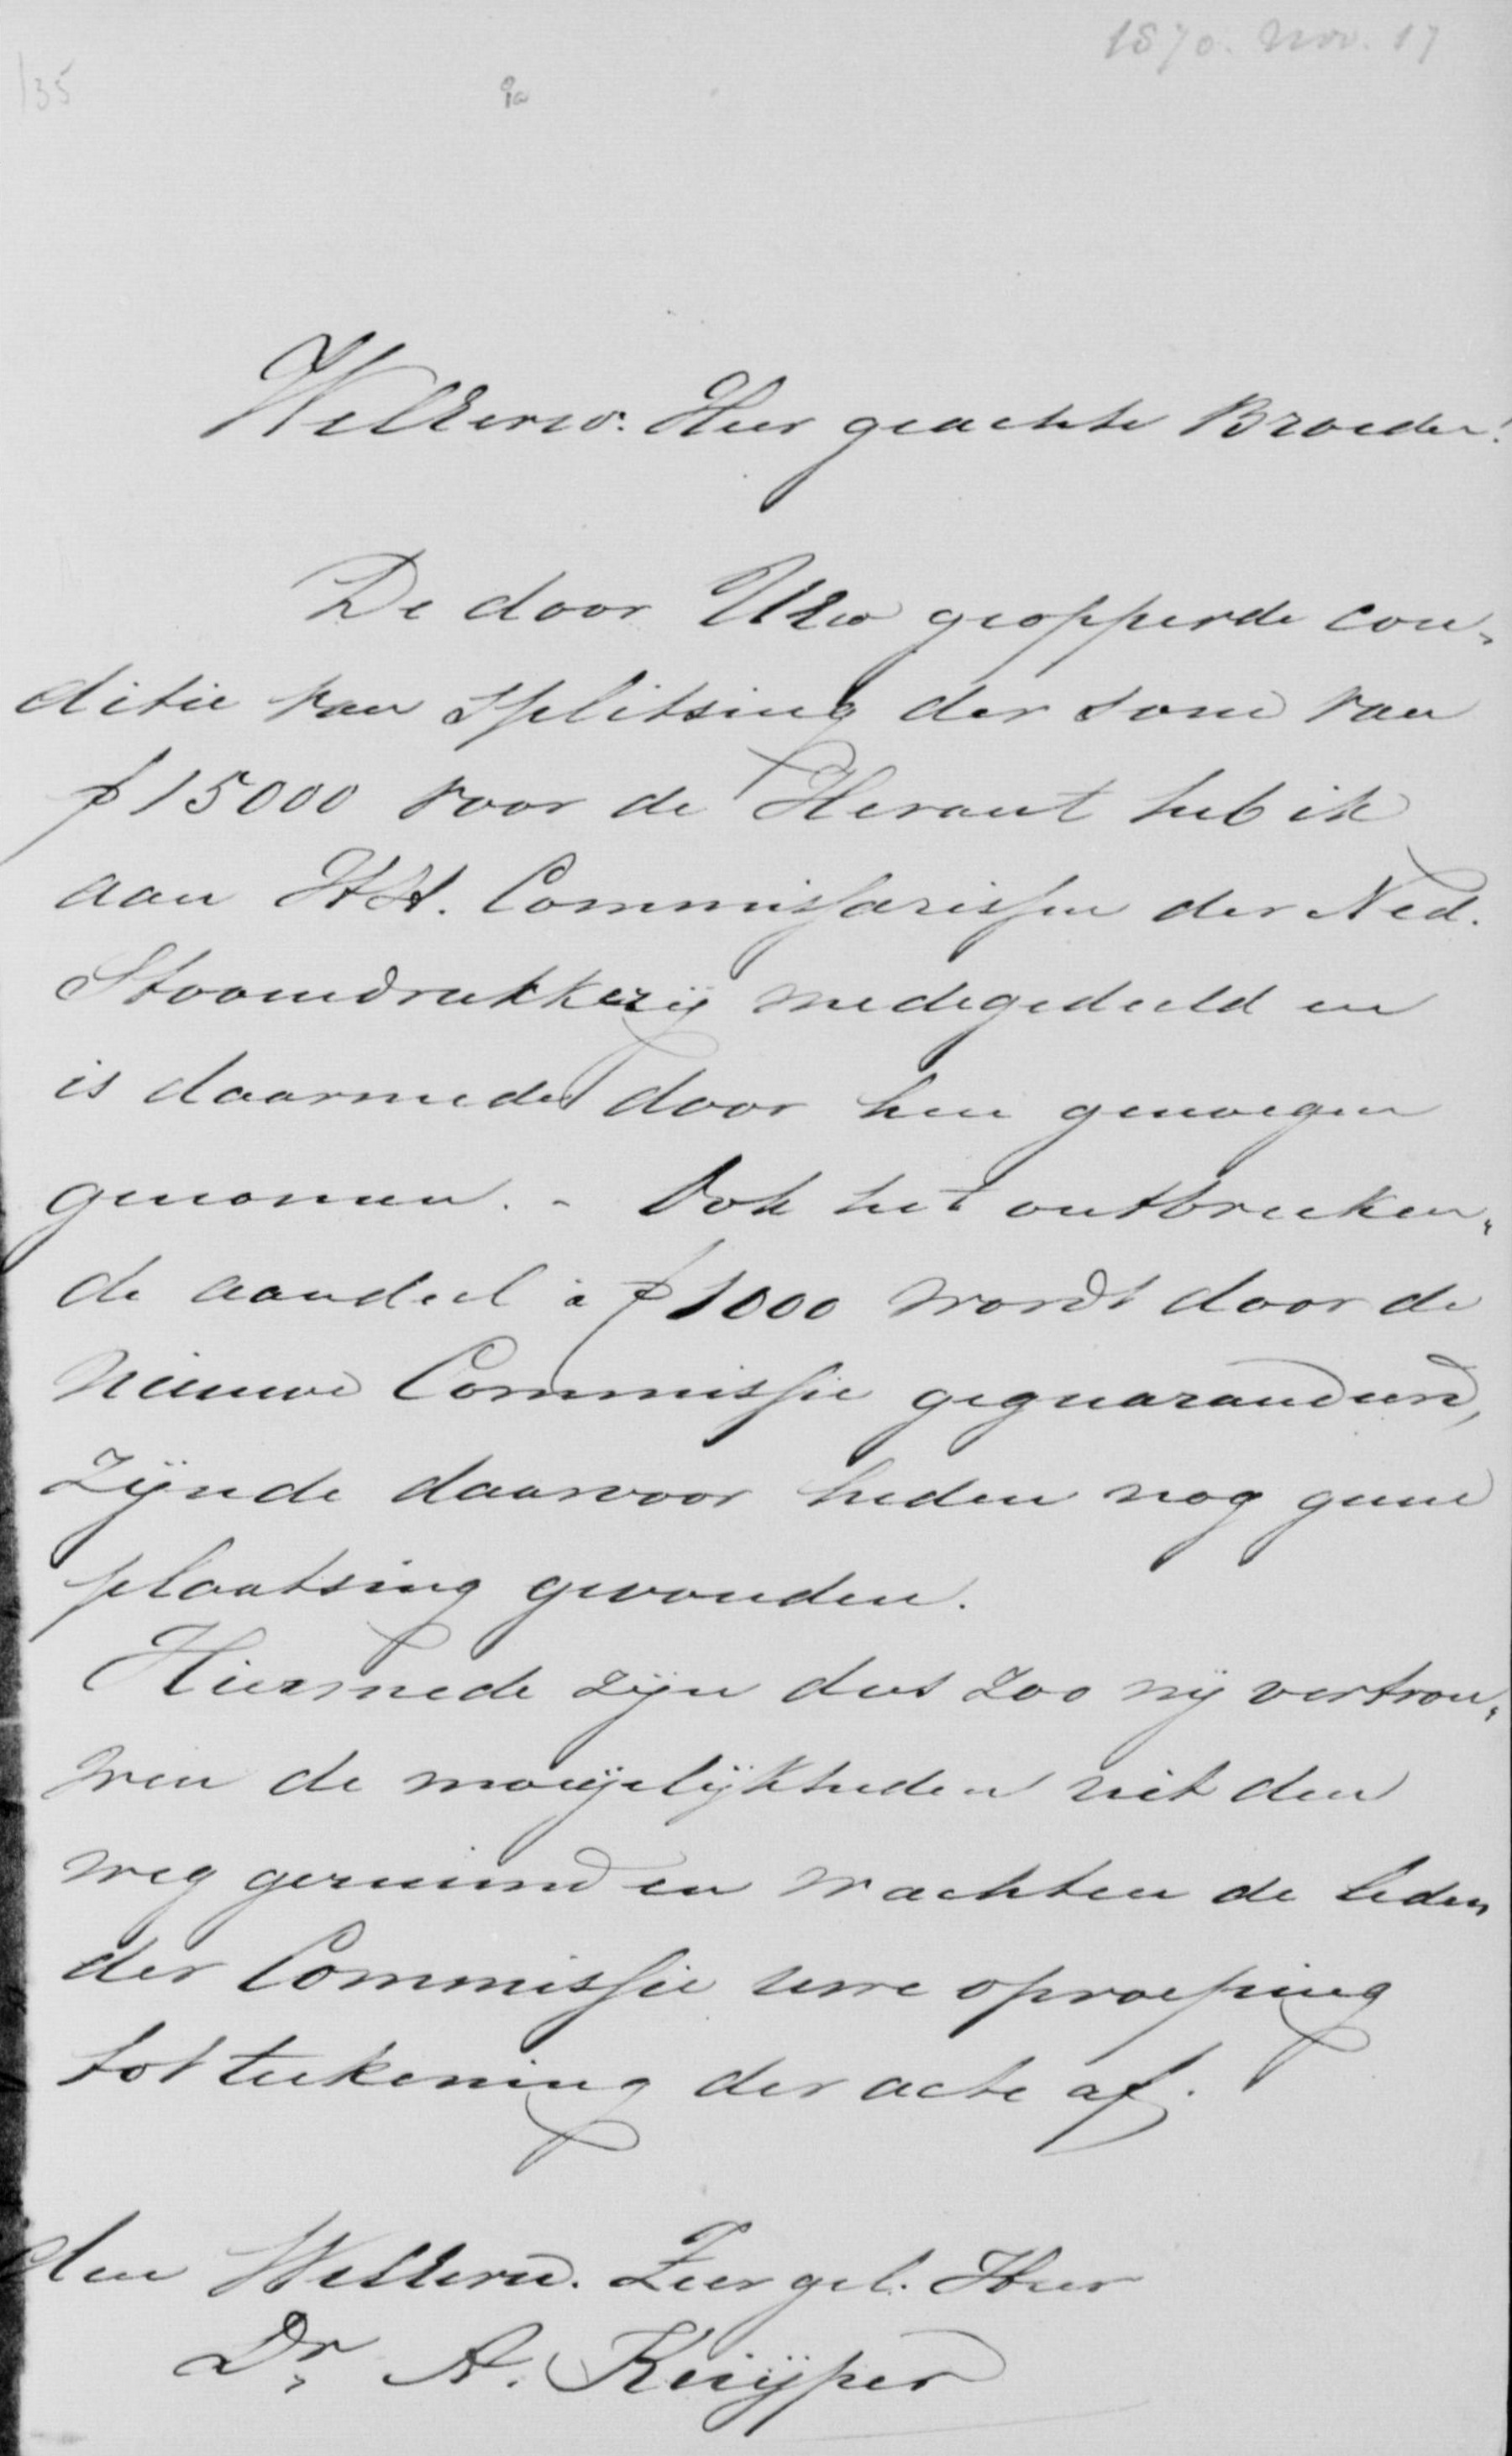 1870. Nov. 17
135
WelEerw. Heer geachte Broeder!
De door UEw geopperde con„
ditie van splitsing der som van
ƒ 15000 voor de Heraut heb ik
aan HH. Commissarissen der Ned.
Stoomdrukkerij medegedeeld en
is daarmede door hen genoegen
genomen. - Ook het ontbreeken„
de aandeel à ƒ 1000 wordt door de
nieuwe Commissie geguarandeerd,
zijnde daarvoor heden nog geene
plaatsing gevonden.
Hiermede zijn dus zoo wij vertrou„
wen de moeijelijkheden uit den
weg geruimd en wachten de leden
der Commissie uwe oproeping
tot teekening der acte af.
den WelEerw. Zeer gel. Heer
Dr. A. Kuijper